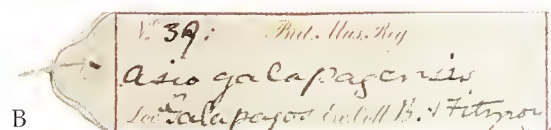 V. 39: Brit. Mus. Reg
Asio galapagensis
Loc. Galapagos Ex Coll B. A Fitzroy
B